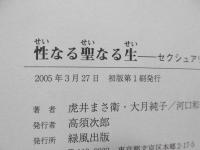 せい せい せい
性なる聖なる生――セクシュアリ
2005年3月27日 初版第1刷発行
著者 虎井まさ衛・大月純子/河口和
発行者 高須次郎
発行所 緑風出版